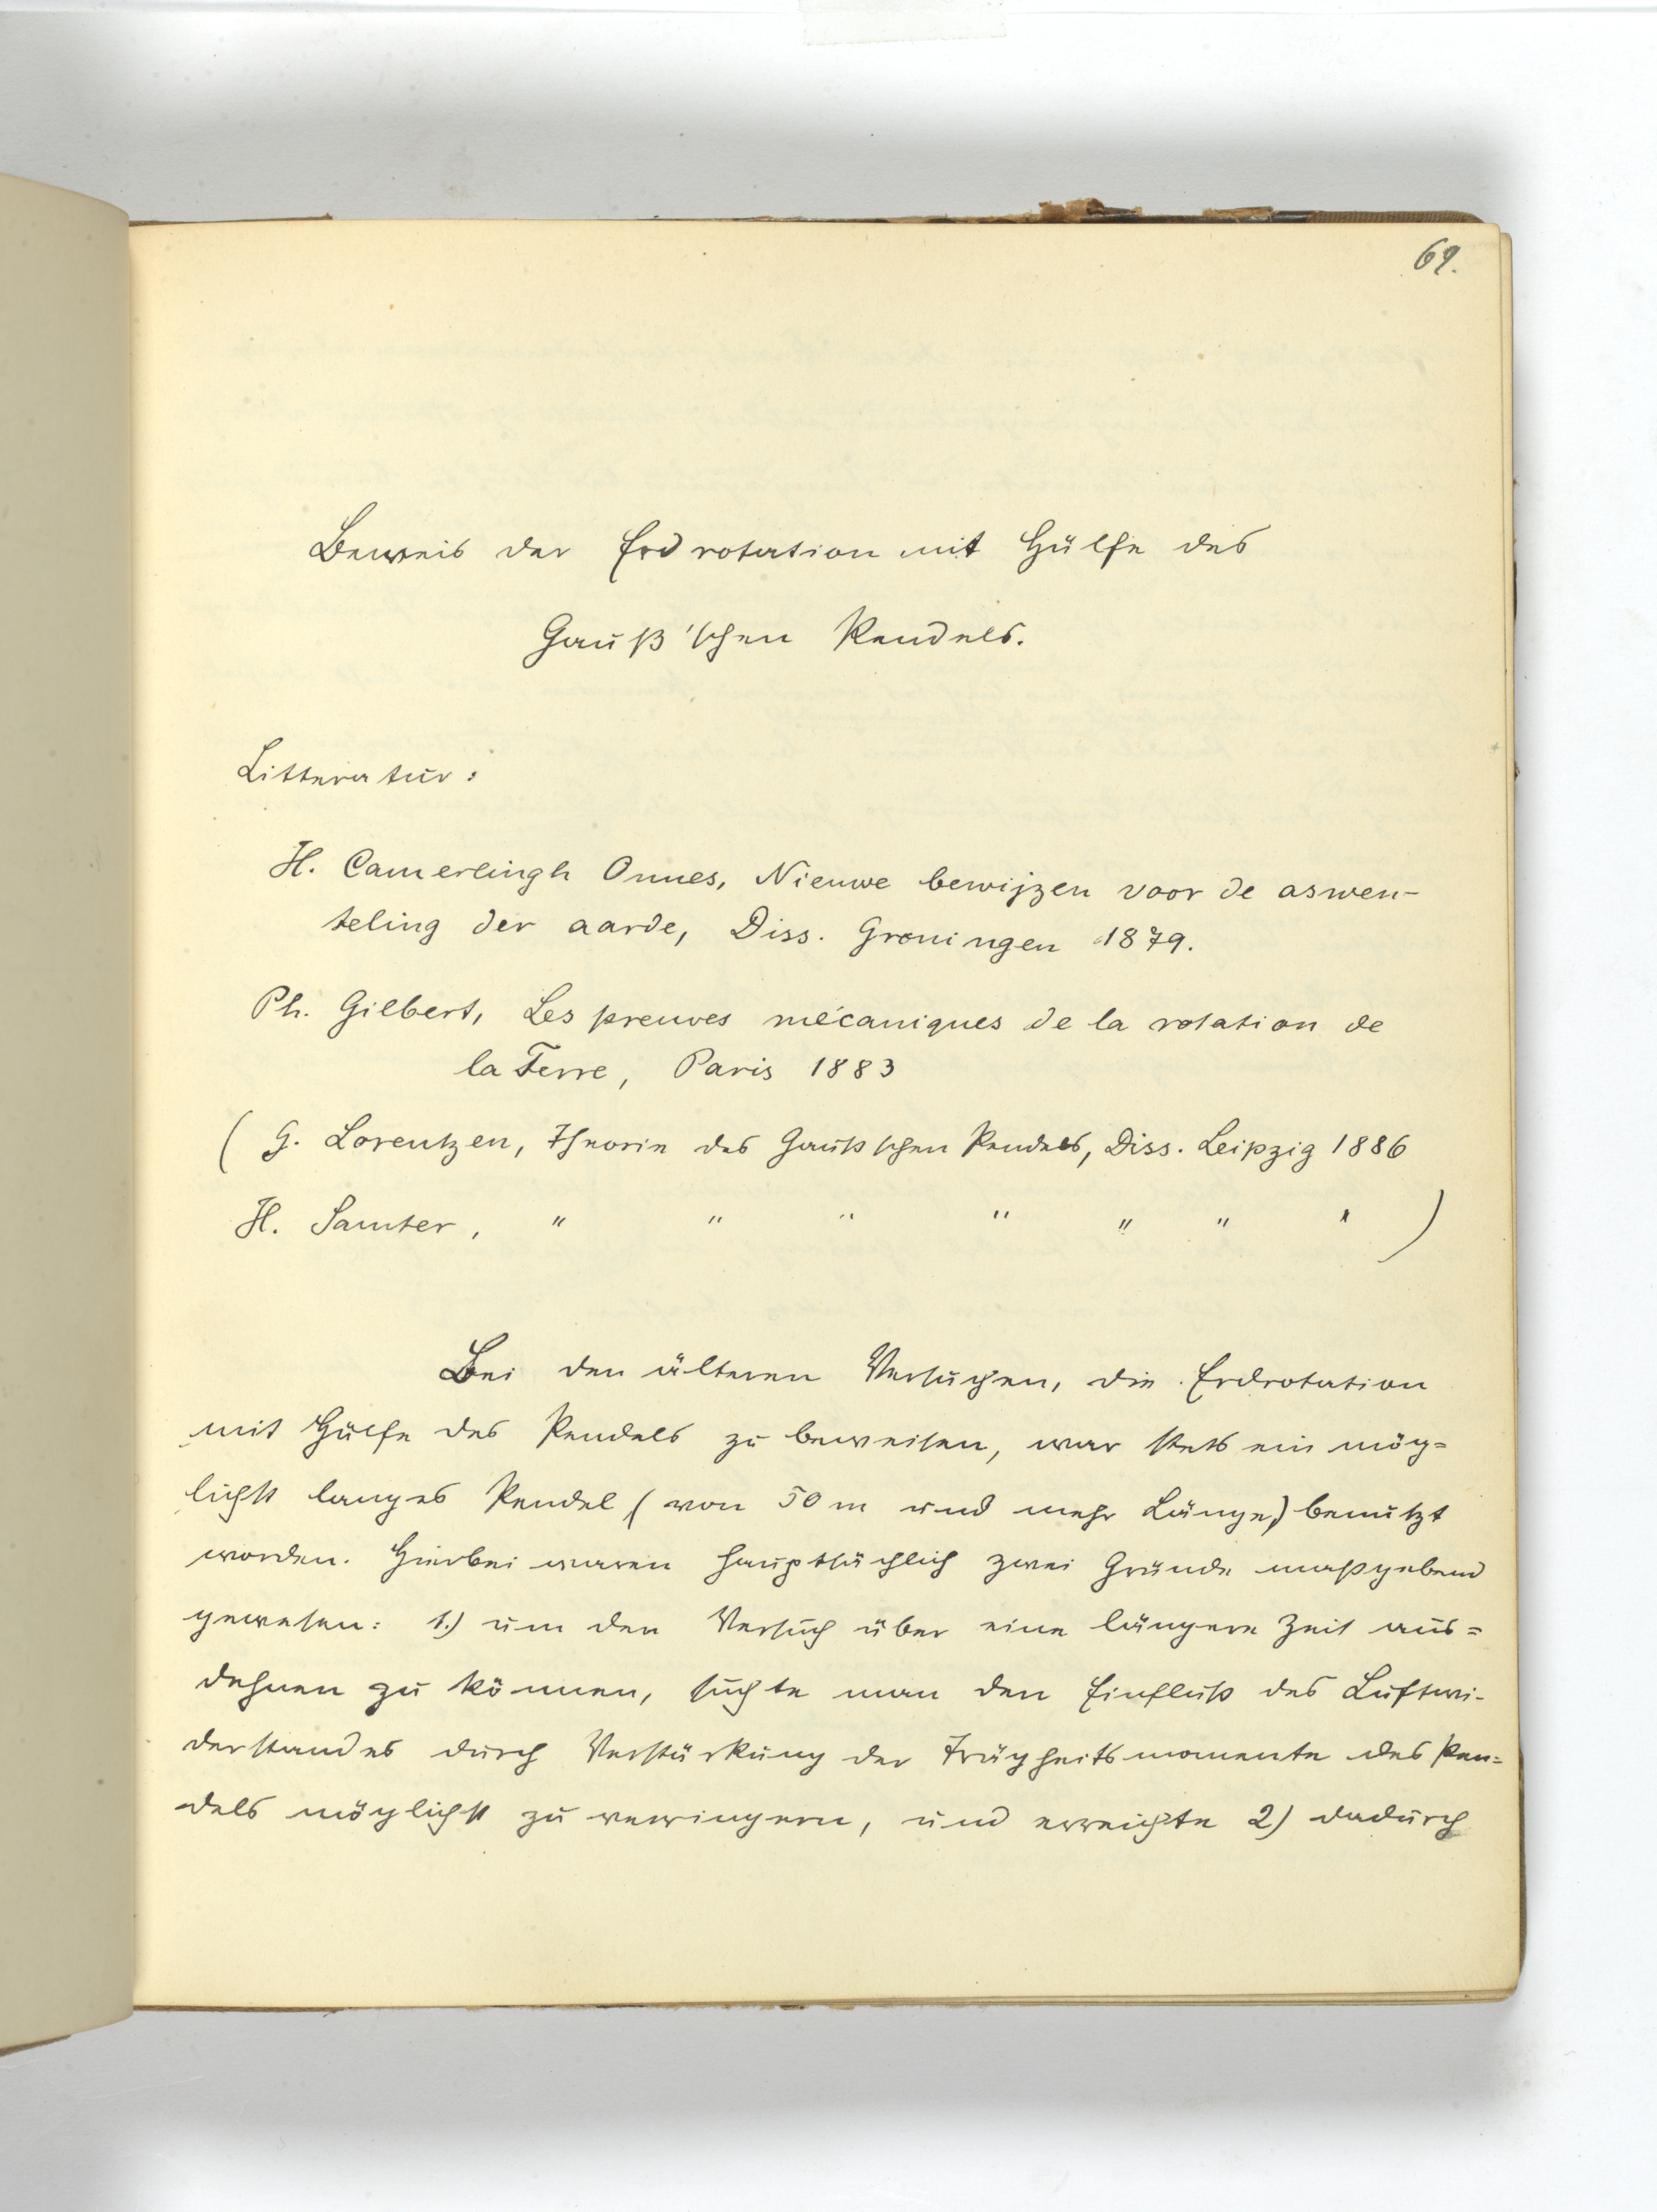 69.
Beweis der Erdrotation mit Hülfe des
Gauß'schen Pendels.
Litteratur:
H. Camerlingh Onnes, Nieuwe bewijzen voor de aswen-
teling der aarde, Diss. Groningen 1879.
Ph. Gilbert, Les preuves mécaniques de la rotation de
la Terre, Paris 1883
( G. Lorentzen, Theorie des Gaußschen Pendels, Diss. Leipzig 1886
H. Samter, " " " " " " " )
Bei den älteren Versuchen, die Erdrotation
mit Hülfe des Pendels zu beweisen, war stets ein mög=
lichst langes Pendel (von 50 m und mehr Länge) benutzt
worden. Hierbei waren hauptsächlich zwei Gründe maßgebend
gewesen: 1.) um den Versuch über eine längere Zeit aus=
dehnen zu können, suchte man den Einfluß des Luftwi-
derstandes durch Verstärkung der Trägheitsmomente des Pen=
dels möglichst zu verringern, und erreichte 2) dadurch